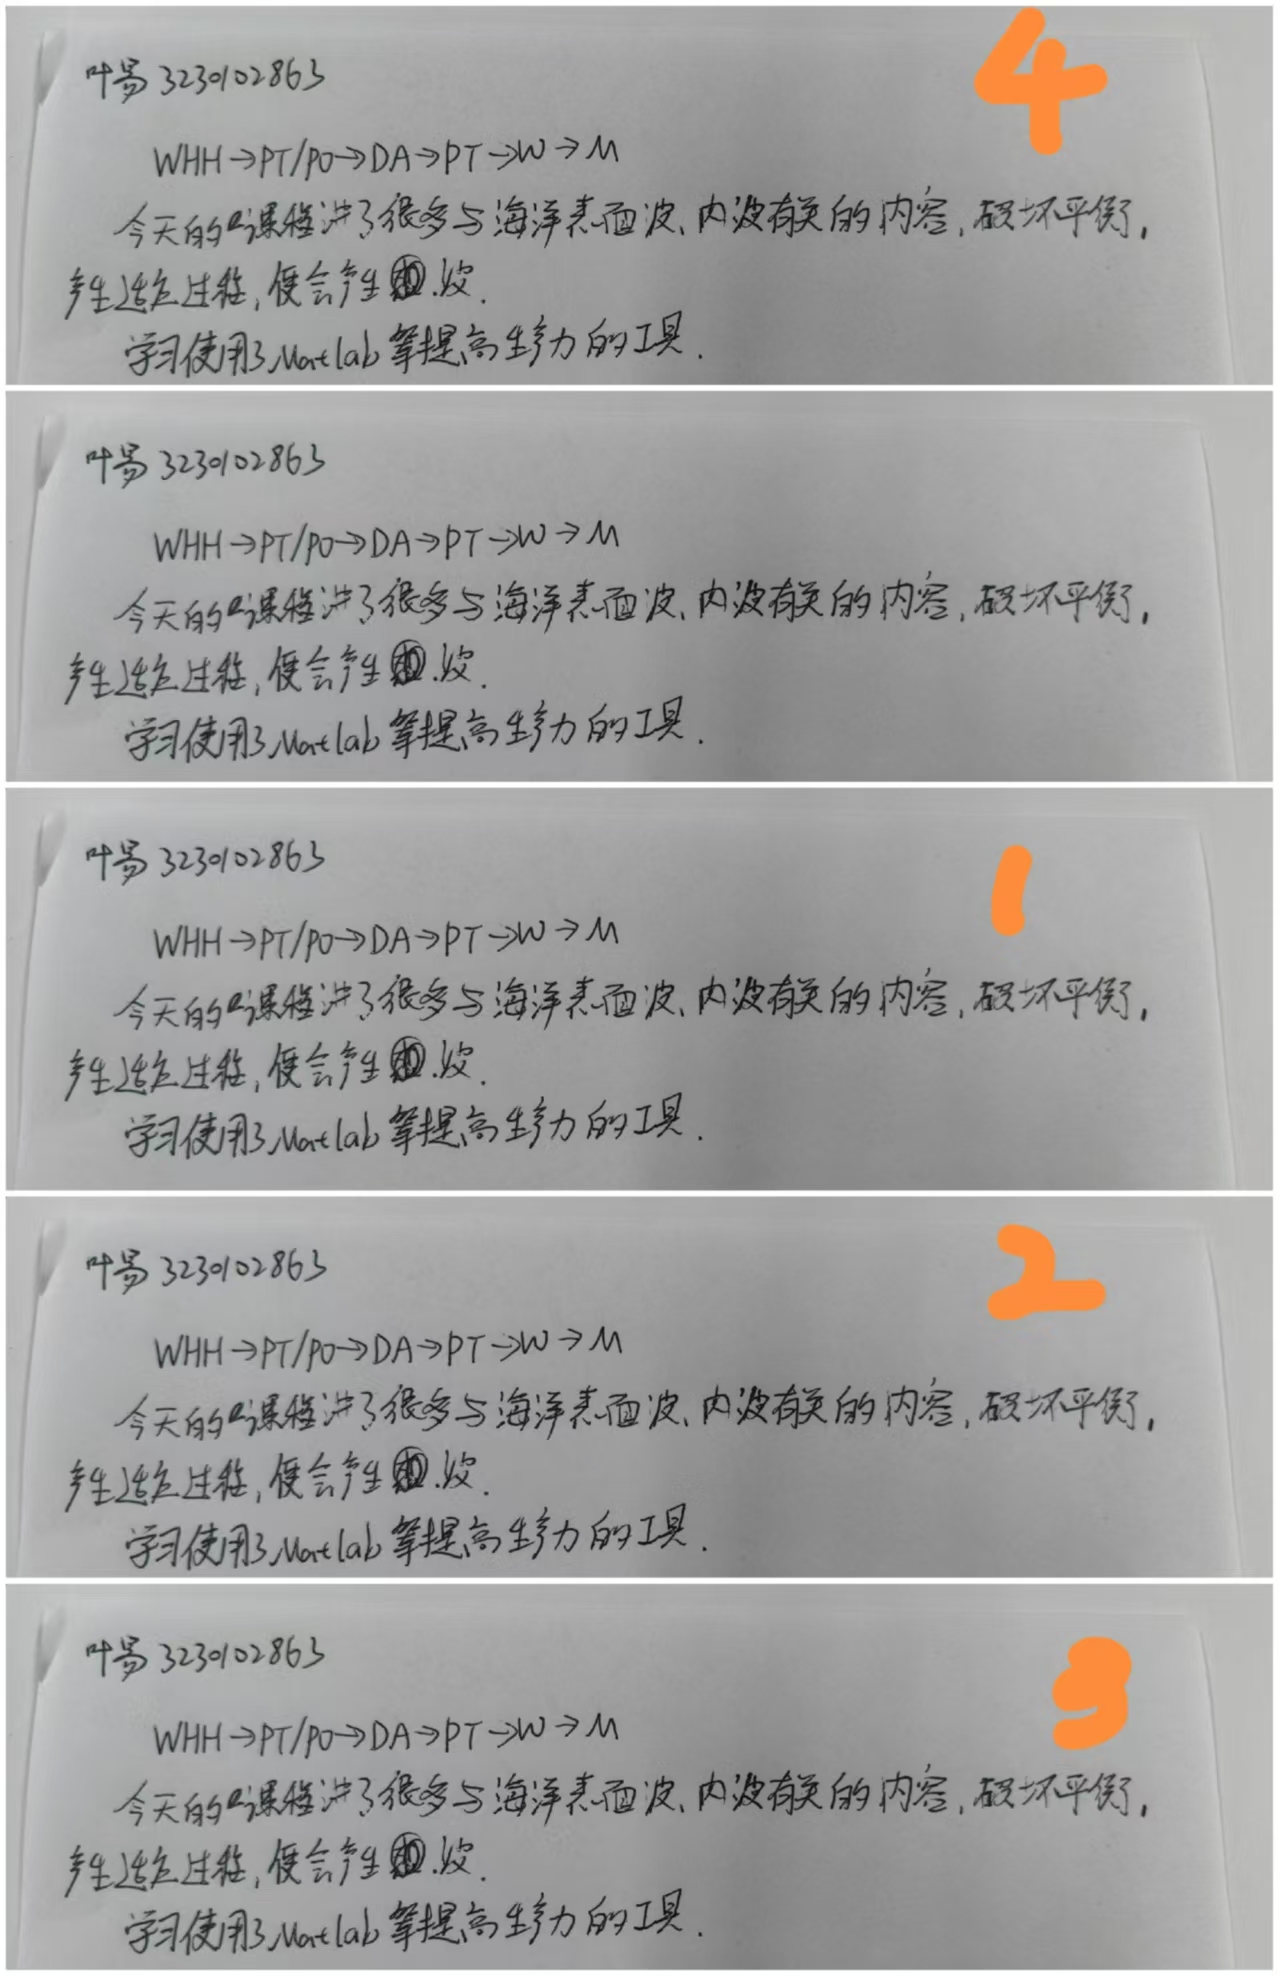 叶易 3230102863
4
WHH→PT/PO→DA→PT→W→M
今天的课程讲了很多与海洋表面波、内波有关的内容,破坏平衡,
产生适应过程,便会产生波.
学习使用了Matlab等提高生产力的工具.
叶易 3230102863
WHH→PT/PO→DA→PT→W→M
今天的课程讲了很多与海洋表面波、内波有关的内容,破坏平衡,
产生适应过程,便会产生波.
学习使用了Matlab等提高生产力的工具.
叶易 3230102863
1
WHH→PT/PO→DA→PT→W→M
今天的课程讲了很多与海洋表面波、内波有关的内容,破坏平衡,
产生适应过程,便会产生波.
学习使用了Matlab等提高生产力的工具.
叶易 3230102863
2
WHH→PT/PO→DA→PT→W→M
今天的课程讲了很多与海洋表面波、内波有关的内容,破坏平衡,
产生适应过程,便会产生波.
学习使用了Matlab等提高生产力的工具.
叶易 3230102863
3
WHH→PT/PO→DA→PT→W→M
今天的课程讲了很多与海洋表面波、内波有关的内容,破坏平衡,
产生适应过程,便会产生波.
学习使用了Matlab等提高生产力的工具.